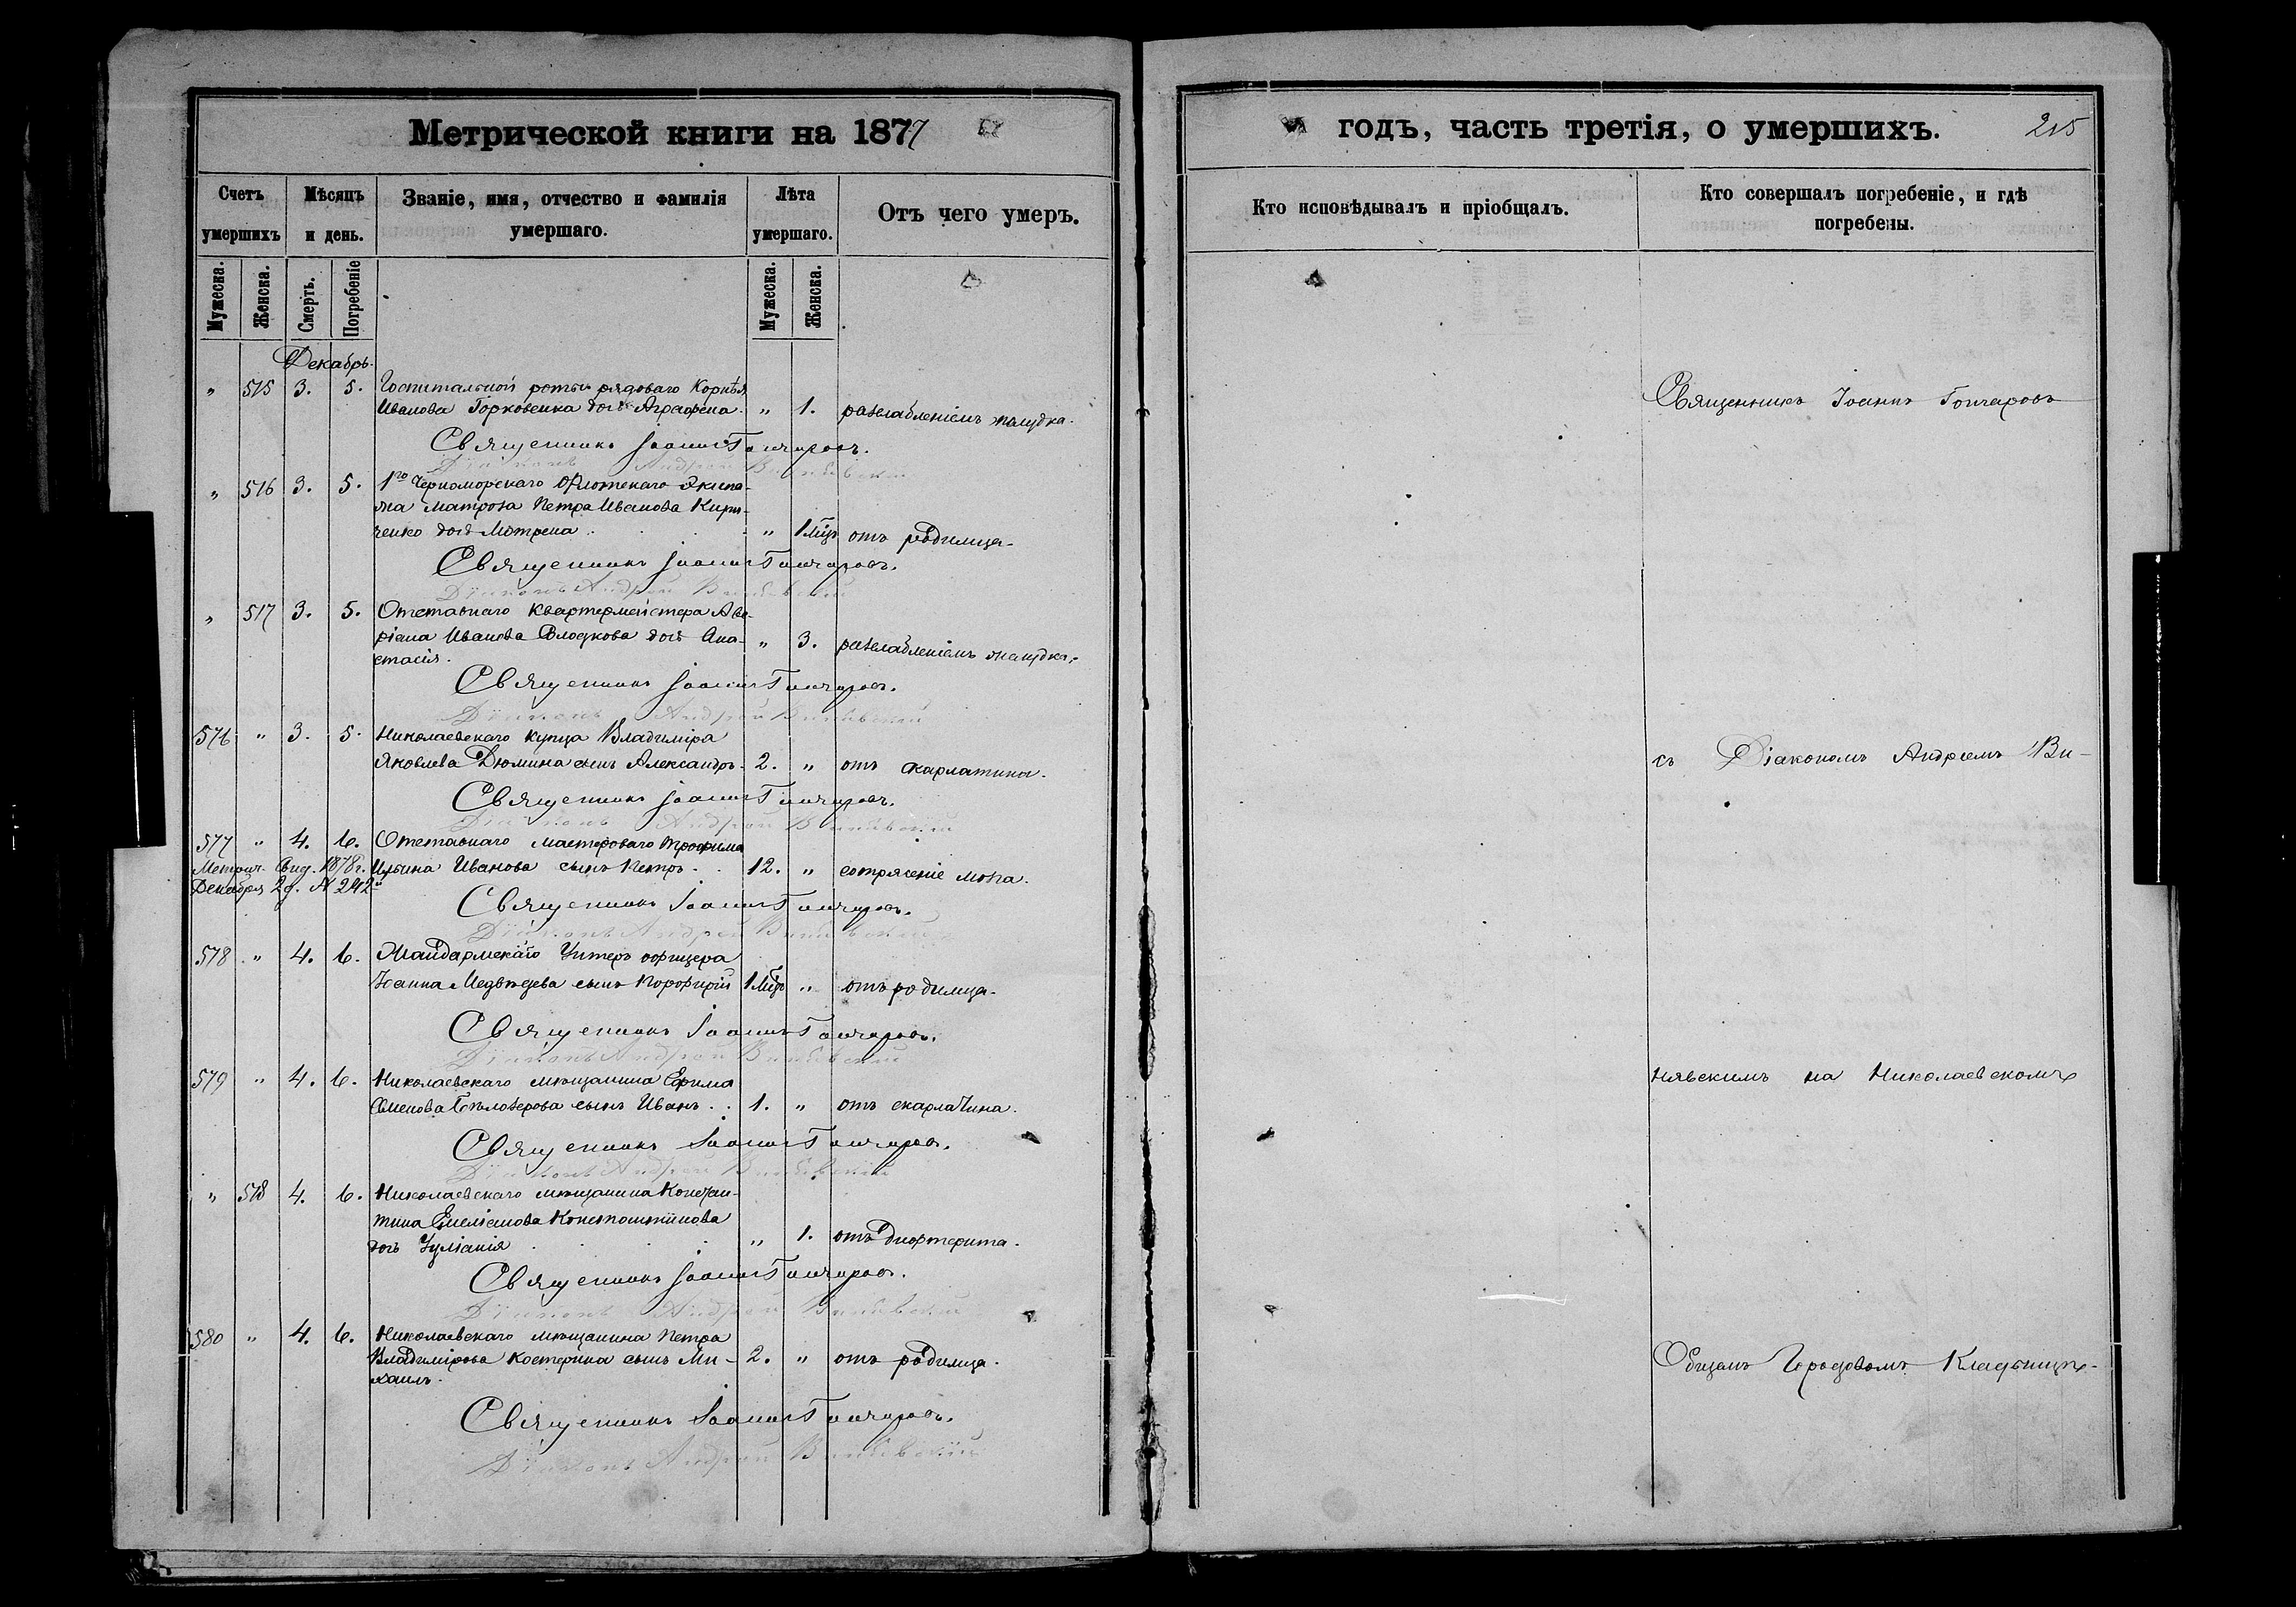 Метрической книги на 1877
Счетъ умершихъ
Мѣсяцъ и день.
Званіе, имя, отчество и фамилія умершаго.
Лѣта умершаго.
Отъ чего умеръ.
Мужеска.
Женска.
Смерть.
Погребеніе
Мужеска.
Женска.
Декабрь.
" 515 3. 5. Госпитальной роты рядоваго Корнѣя
Иванова Горковенка дочь Аграфена. " 1. разслабленіемъ желудка.
Священникъ Іоаннъ Гончаровъ.
Діаконъ Андрей
" 516 3. 5. 1го Черноморскаго Флотскаго Экипа-
жа матроза Петра Иванова Кири-
ченко дочь Мотрена . " 1 мцъ отъ родимца.
Священникъ Іоаннъ Гончаровъ.
Діаконъ Андрей
" 517 3. 5. Отставнаго квартермейстера Аве-
ріана Иванова дочь Ана- " 3. разслабленіемъ желудка.
стасія.
Священникъ Іоаннъ Гончаровъ.
Діаконъ Андрей
576 " 3. 5. Николаевскаго купца Владиміра
Яковлева Дюмина сынъ Александръ. 2. " отъ скарлатина.
Священникъ Іоаннъ Гончаровъ.
Діаконъ Андрей
577 " 4. 6. Отставнаго мастероваго Трофима
Метрич. Свид. 1878 г. Иванова сынъ Петръ . . 12. " сотрясеніе мозга.
Декабря 2 д. № 242
Священникъ Іоаннъ Гончаровъ.
Діаконъ Андрей
578 " 4. 6. Жандармскаго Унтеръ офицера
Іоанна Медвѣдева сынъ Порфирій 1 мцъ " отъ родимца.
Священникъ Іоаннъ Гончаровъ.
Діаконъ Андрей
579 " 4. 6. Николаевскаго мѣщанина Ефима
Семенова Бѣлозерова сынъ Иванъ . . 1. " отъ скарлатина.
Священникъ Іоаннъ Гончаровъ.
Діаконъ Андрей
" 518 4. 6. Николаевскаго мѣщанина Констан-
тина Емеліанова Константинова
дочь Іуліанія . . . . " 1. отъ дифтерита.
Священникъ Іоаннъ Гончаровъ.
Діаконъ Андрей
580 " 4. 6. Николаевскаго мѣщанина Петра
Владимірова Костерина сынъ Ми- 2. " отъ родимца.
хаилъ.
Священникъ Іоаннъ Гончаровъ.
Діаконъ Андрей
годъ, часть третія, о умершихъ. 215
Кто исповѣдывалъ и пріобщалъ.
Кто совершалъ погребеніе, и гдѣ погребены.
Священникъ Іоаннъ Гончаровъ
съ Діакономъ Андреемъ Ви-
нявскимъ на Николаевскомъ
Общемъ Городовомъ Кладбищѣ.